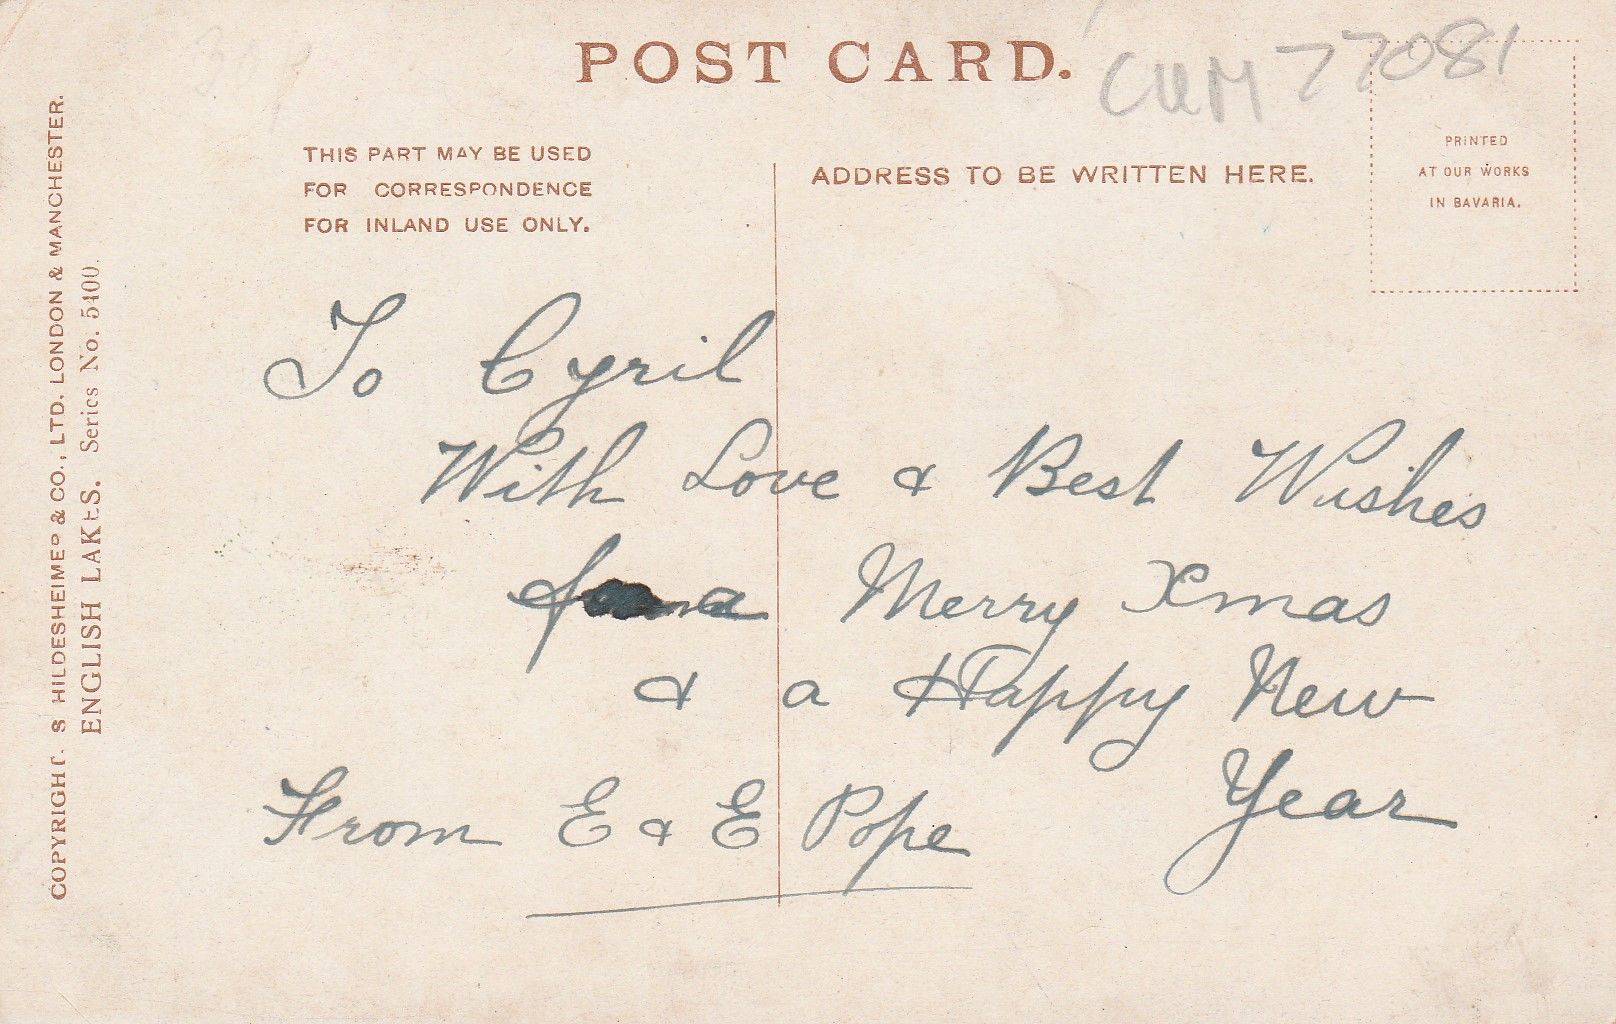 POST CARD.
CUM 77081
THIS PART MAY BE USED
FOR CORRESPONDENCE
FOR INLAND USE ONLY.
ADDRESS TO BE WRITTEN HERE.
PRINTED
AT OUR WORKS
IN BAVARIA.
COPYRIGHT. S HILDESHEIMER & CO., LTD. LONDON & MANCHESTER.
ENGLISH LAKES. Series No. 5400.
To Cyril
With Love & Best Wishes
a Merry Xmas
& a Happy New
Year
From E & E Pope